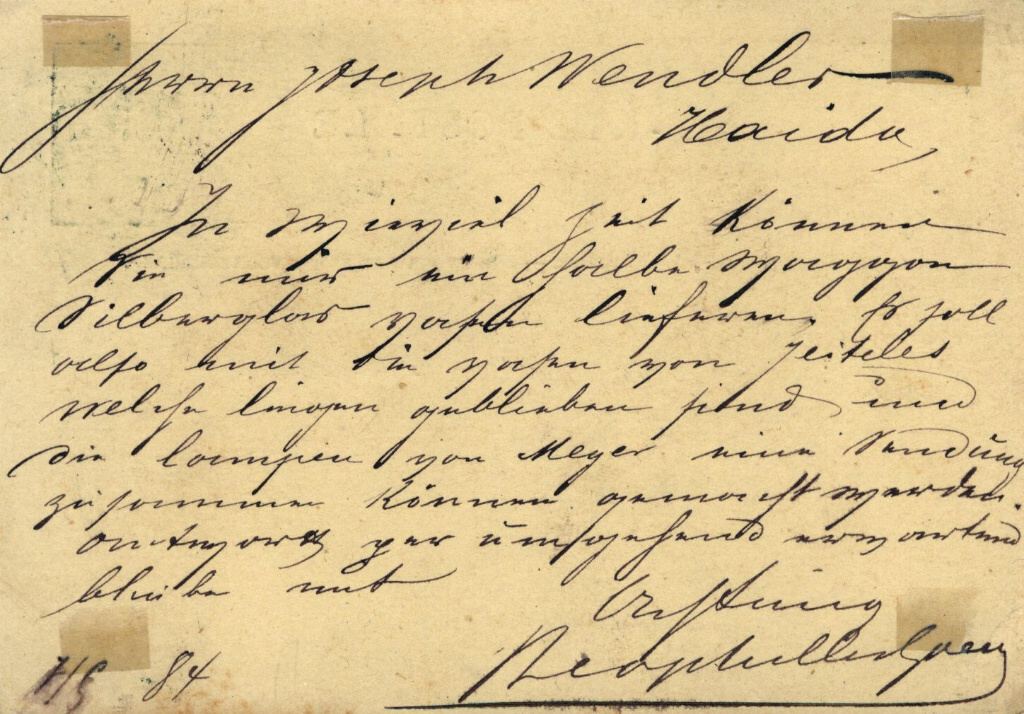 Herrn Joseph Wendler
Haida,
In wieviel Zeit können
Sie mir ein halbe Waggon
Silberglas Vasen lieferen. Es soll
also mit die Vasen von Jeiteles
welche liegen geblieben sind und
die Lampen von Meyer eine Sendung
zusammen können gemacht werden.
Antwort per umgehend erwartend
bleibe mit
Achtung
84